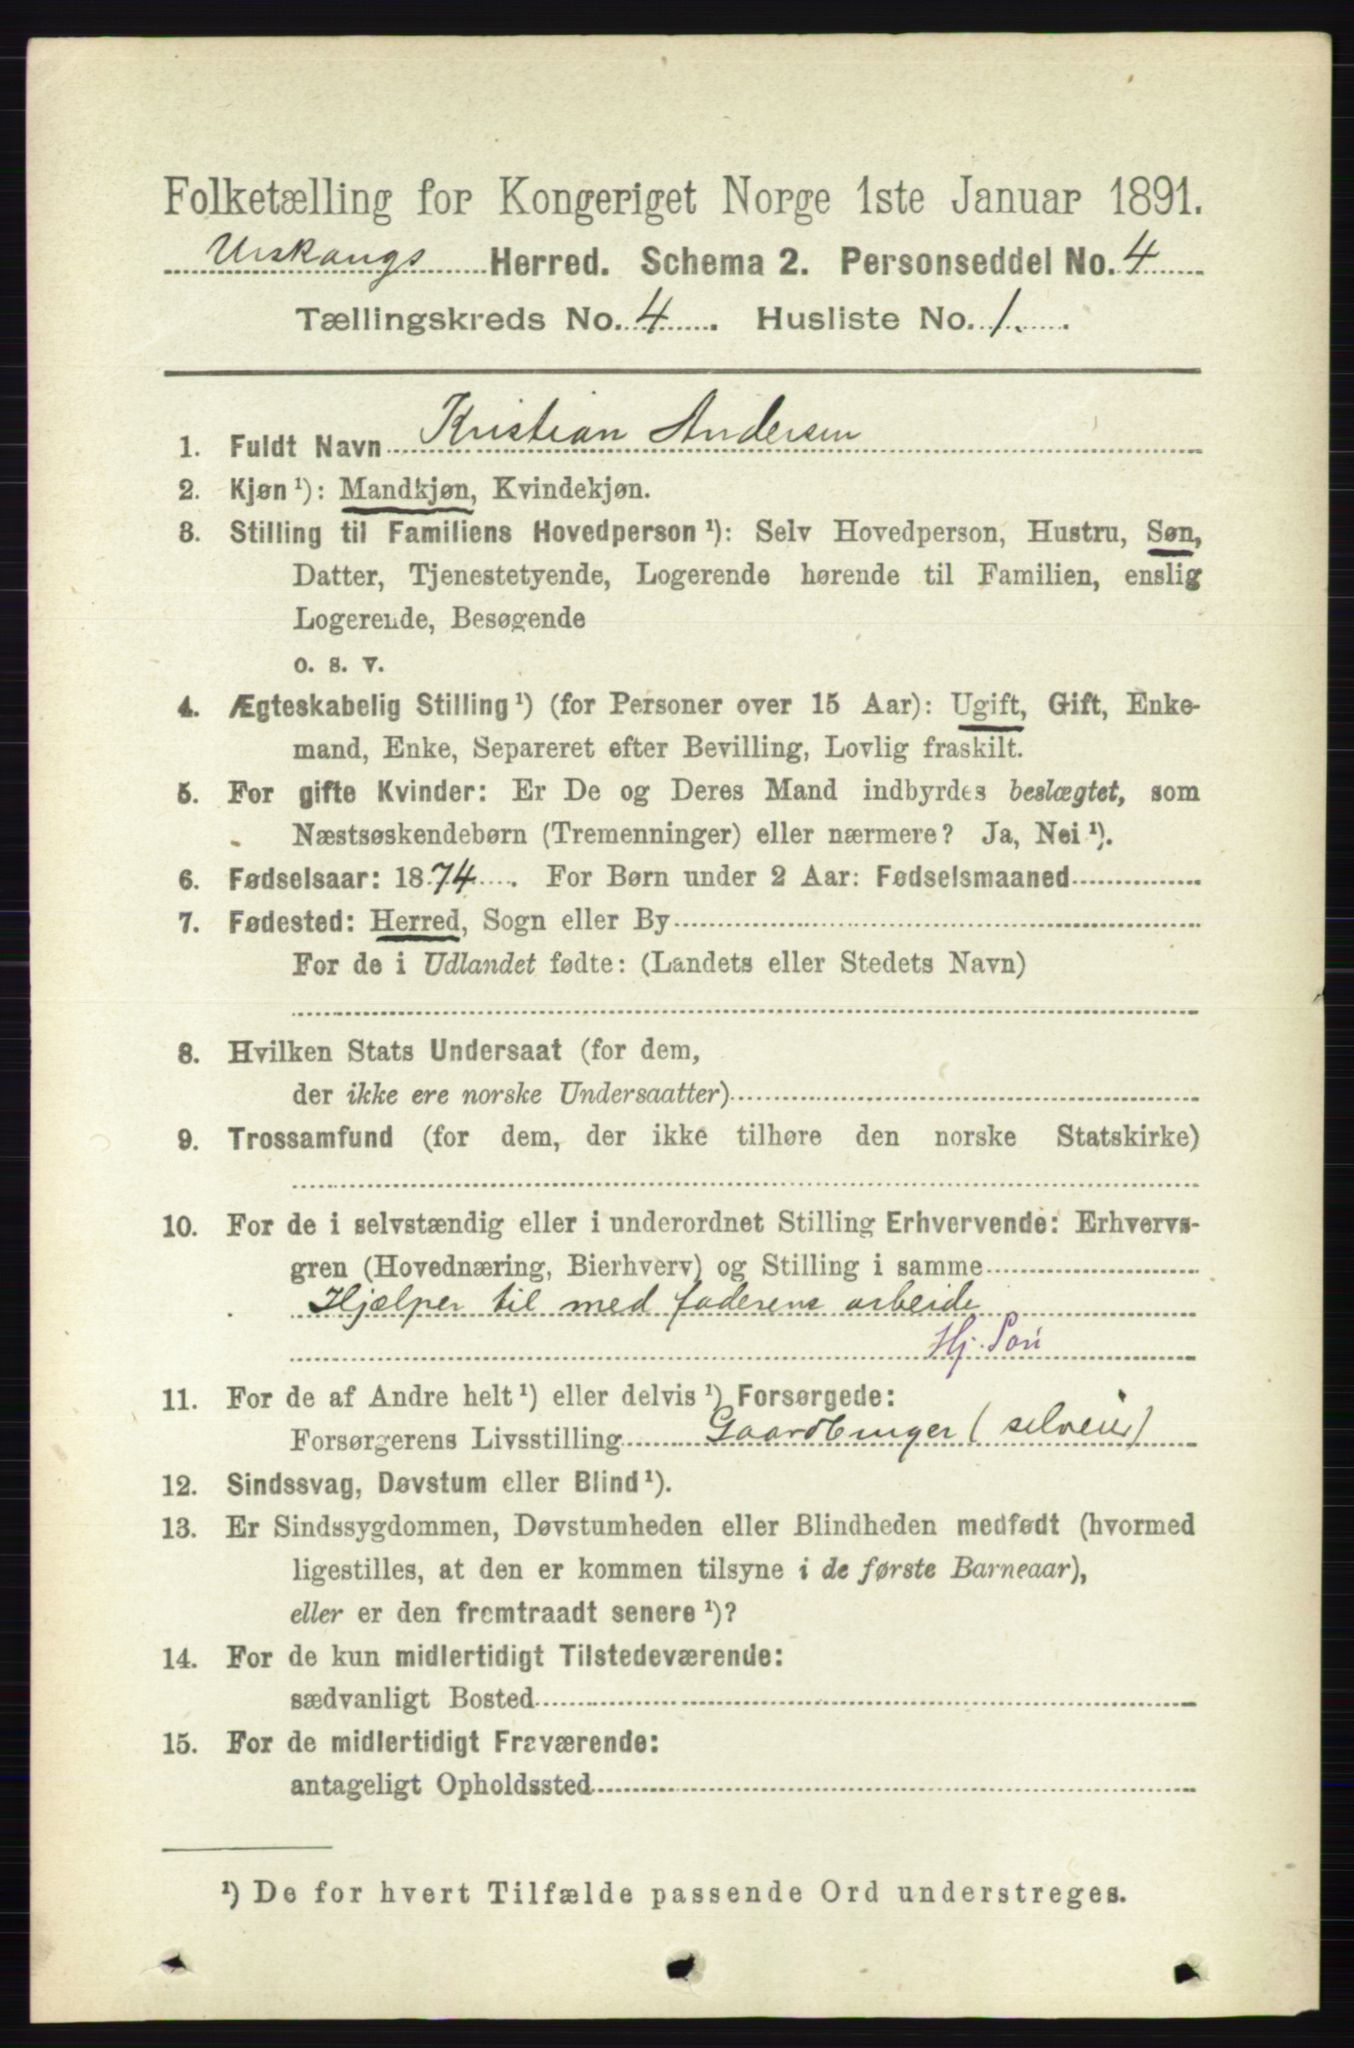 Folketælling for Kongeriget Norge 1ste Januar 1891.
Urskougs Herred. Schema 2. Personseddel No. 4
Tællingskreds No. 4. Husliste No. 1.
1. Fuldt Navn Kristian Andersen
2. Kjøn ¹): Mandkjøn, Kvindekjøn.
3. Stilling til Familiens Hovedperson ¹): Selv Hovedperson, Hustru, Søn,
Datter, Tjenestetyende, Logerende hørende til Familien, enslig
Logerende, Besøgende
o. s. v.
4. Ægteskabelig Stilling ¹) (for Personer over 15 Aar): Ugift, Gift, Enke-
mand, Enke, Separeret efter Bevilling, Lovlig fraskilt.
5. For gifte Kvinder: Er De og Deres Mand indbyrdes beslægtet, som
Næstsøskendebørn (Tremenninger) eller nærmere? Ja, Nei ¹).
6. Fødselsaar: 1874. For Børn under 2 Aar: Fødselsmaaned
7. Fødested: Herred, Sogn eller By
For de i Udlandet fødte: (Landets eller Stedets Navn)
8. Hvilken Stats Undersaat (for dem,
der ikke ere norske Undersaatter)
9. Trossamfund (for dem, der ikke tilhøre den norske Statskirke)
10. For de i selvstændig eller i underordnet Stilling Erhvervende: Erhvervs-
gren (Hovednæring, Bierhverv) og Stilling i samme
Hjælper til med faderens arbeide
Hj. Søn
11. For de af Andre helt ¹) eller delvis ¹) Forsørgede:
Forsørgerens Livsstilling Gaardbruger (selveier)
12. Sindssvag, Døvstum eller Blind ¹).
13. Er Sindssygdommen, Døvstumheden eller Blindheden medfødt (hvormed
ligestilles, at den er kommen tilsyne i de første Barneaar),
eller er den fremtraadt senere ¹)?
14. For de kun midlertidigt Tilstedeværende:
sædvanligt Bosted
15. For de midlertidigt Fraværende:
antageligt Opholdssted
¹) De for hvert Tilfælde passende Ord understreges.